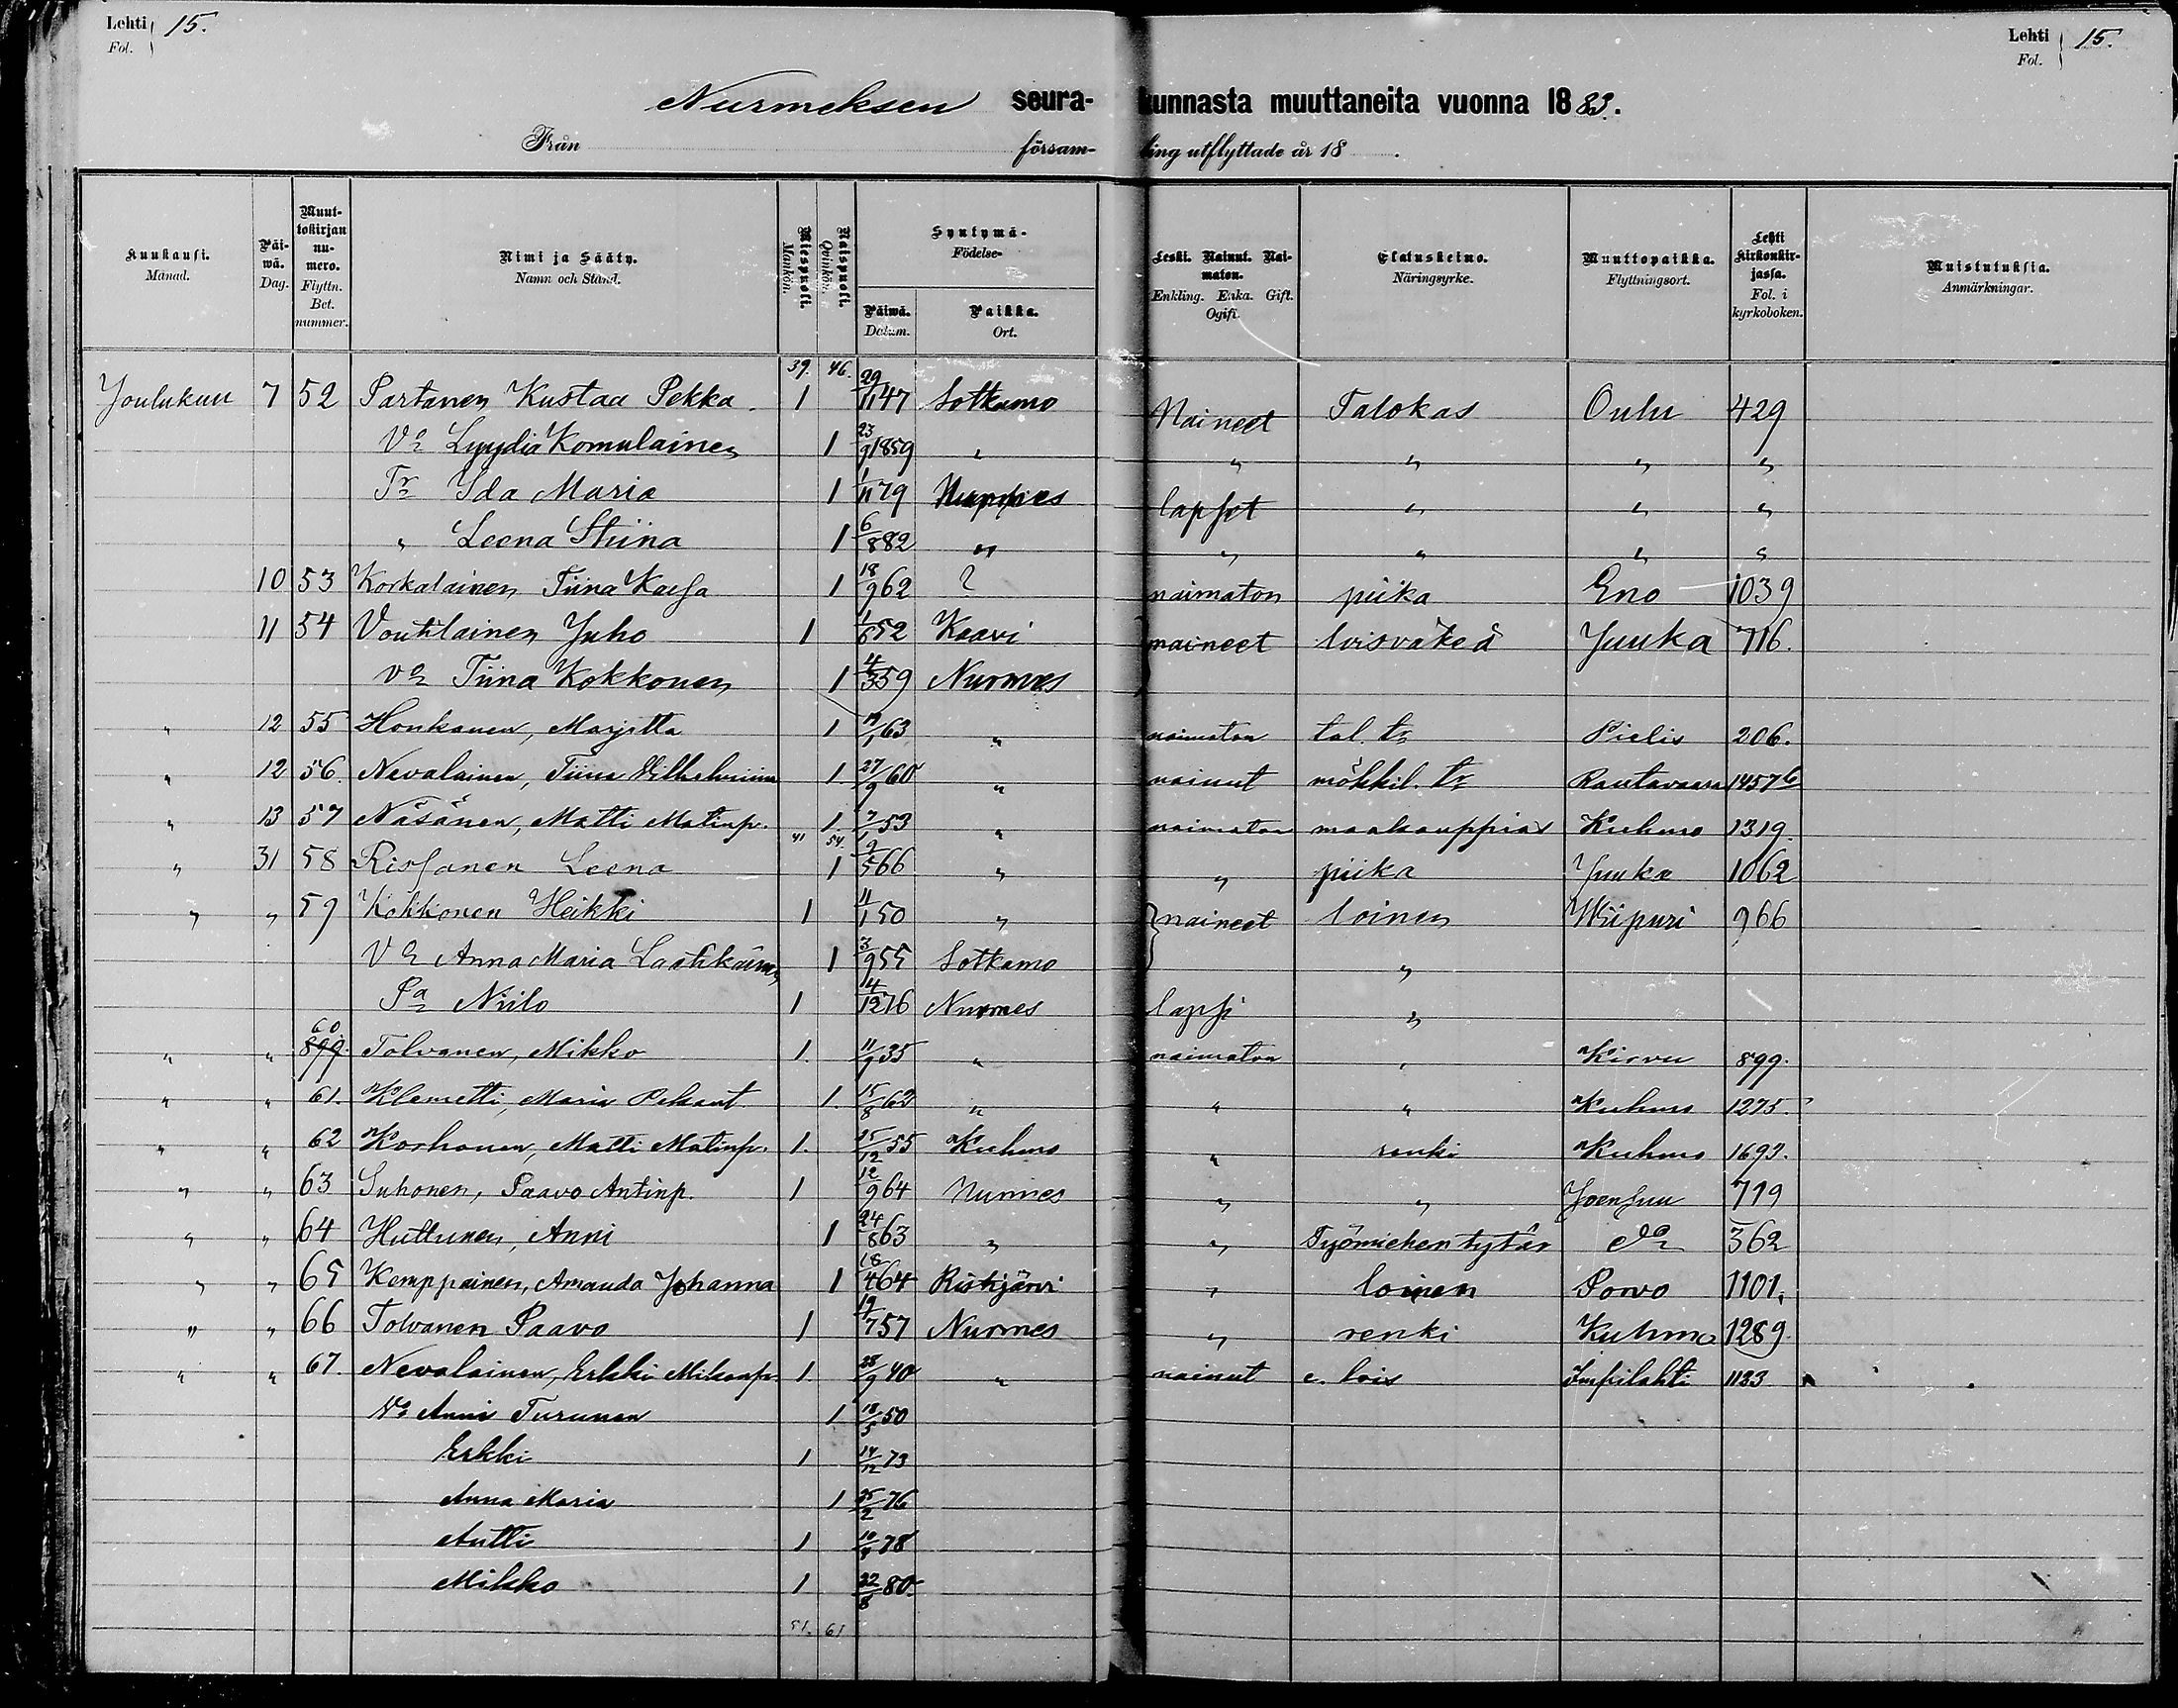 Lehti 15.
Fol.
Lehti 15.
Fol.
Nurmeksen seurakunnasta muuttaneita vuonna 1883.
Från församling utflyttade år 18 .
Kuukausi. Månad. Päiwä. Dag. Muuttokirjan numero. Flyttn. Bet. nummer. Nimi ja Sääty. Namn och Stånd. Miespuoli. Mankön. Naispuoli. Qvinkön. Syntymä- Födelse- Päiwä. Datum. Paikka. Ort. Leski. Nainut. Naimaton. Enkling. Enka. Gift. Ogift. Elatuskeino. Näringsyrke. Muuttopaikka. Flyttningsort. Lehti kirkonkirjassa. Fol. i kyrkoboken. Muistutuksia. Anmärkningar.
39. 46.
Joulukuu 7 52 Partanen Kustaa Pekka. 1 29/11 47 Sotkamo Naineet Talokas Oulu 429
Vo Lyydia Komulainen 1 23/9 1859 " " " " "
Tr Ida Maria 1 1/11 79 Nurmes lapset " " "
" Leena Stiina 1 6/8 82 " " " " "
10 53 Korkalainen Tiina Kaisa 1 18/9 62 ? naimaton piika Eno 1039
11 54 Voutilainen Juho 1 1/6 52 Kaavi naineet loisväkeä Juuka 716.
Vo Tiina Kokkonen 1 4/3 59 Nurmes
" 12 55 Honkanen, Marjetta 1 19/1 63 " naimaton tal. tr Pielis 206.
" 12 56. Nevalainen, Tiina Vilhelmiina 1. 27/9 60 " nainut mökkil. tr Rautavaara 1457 b
" 13 57 Näsänen, Matti Matinp. 1. 7/1 53 " naimaton maakauppias Kuhmo 1319.
41 54.
" 31 58 Rissanen Leena 1 9/5 66 " " piika Juuka 1062
" " 59 Kokkonen Heikki 1 11/1 50 " naineet loinen Wiipuri 966
Vo Anna Maria 1 3/9 55 Sotkamo "
Pa Niilo 1 14/12 76 Nurmes lapsi "
" " 60 899. Tolvanen, Mikko 1. 11/9 35 " naimaton " Kirvu 899.
" " 61. Klemetti, Maria Pekant. 1. 15/8 62 " " " Kuhmo 1275.
" " 62 Korhonen, Matti Matinp. 1. 25/12 55 Kuhmo " renki Kuhmo 1693.
" " 63 Suhonen, Paavo Antinp. 1 12/9 64 Nurmes " " Joensuu 719
" " 64 Huttunen, Anni 1 24/8 63 " " Työmiehen tytär do 362
" " 65 Kemppainen, Amanda Johanna 1 18/4 64 Ristijärvi " loinen Porvo 1101.
" " 66 Tolvanen Paavo 1 19/7 57 Nurmes " renki Kuhmo 1289.
" " 67. Nevalainen, Erkki Mikonp. 1. 28/9 40 " nainut e. lois Impilahti 1123
Vo Anni Turunen 1 18/5 50
Erkki 1 14/12 73
Anna Maria 1 25/2 76
Antti 1 10/9 78
Mikko 1 22/8 80.
51. 61